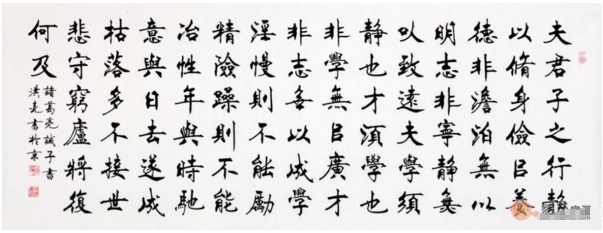 夫君子之行靜
以脩身儉㠯養
德非澹泊無以
明志非寧靜無
以致遠夫學須
靜也才須學也
非學無㠯廣才
非志無以成學
淫慢則不能勵
精險躁則不能
冶性年與時馳
意與日去遂成
枯落多不接世
悲守窮廬將復
何及
諸葛亮誡子書
洪亮書於京